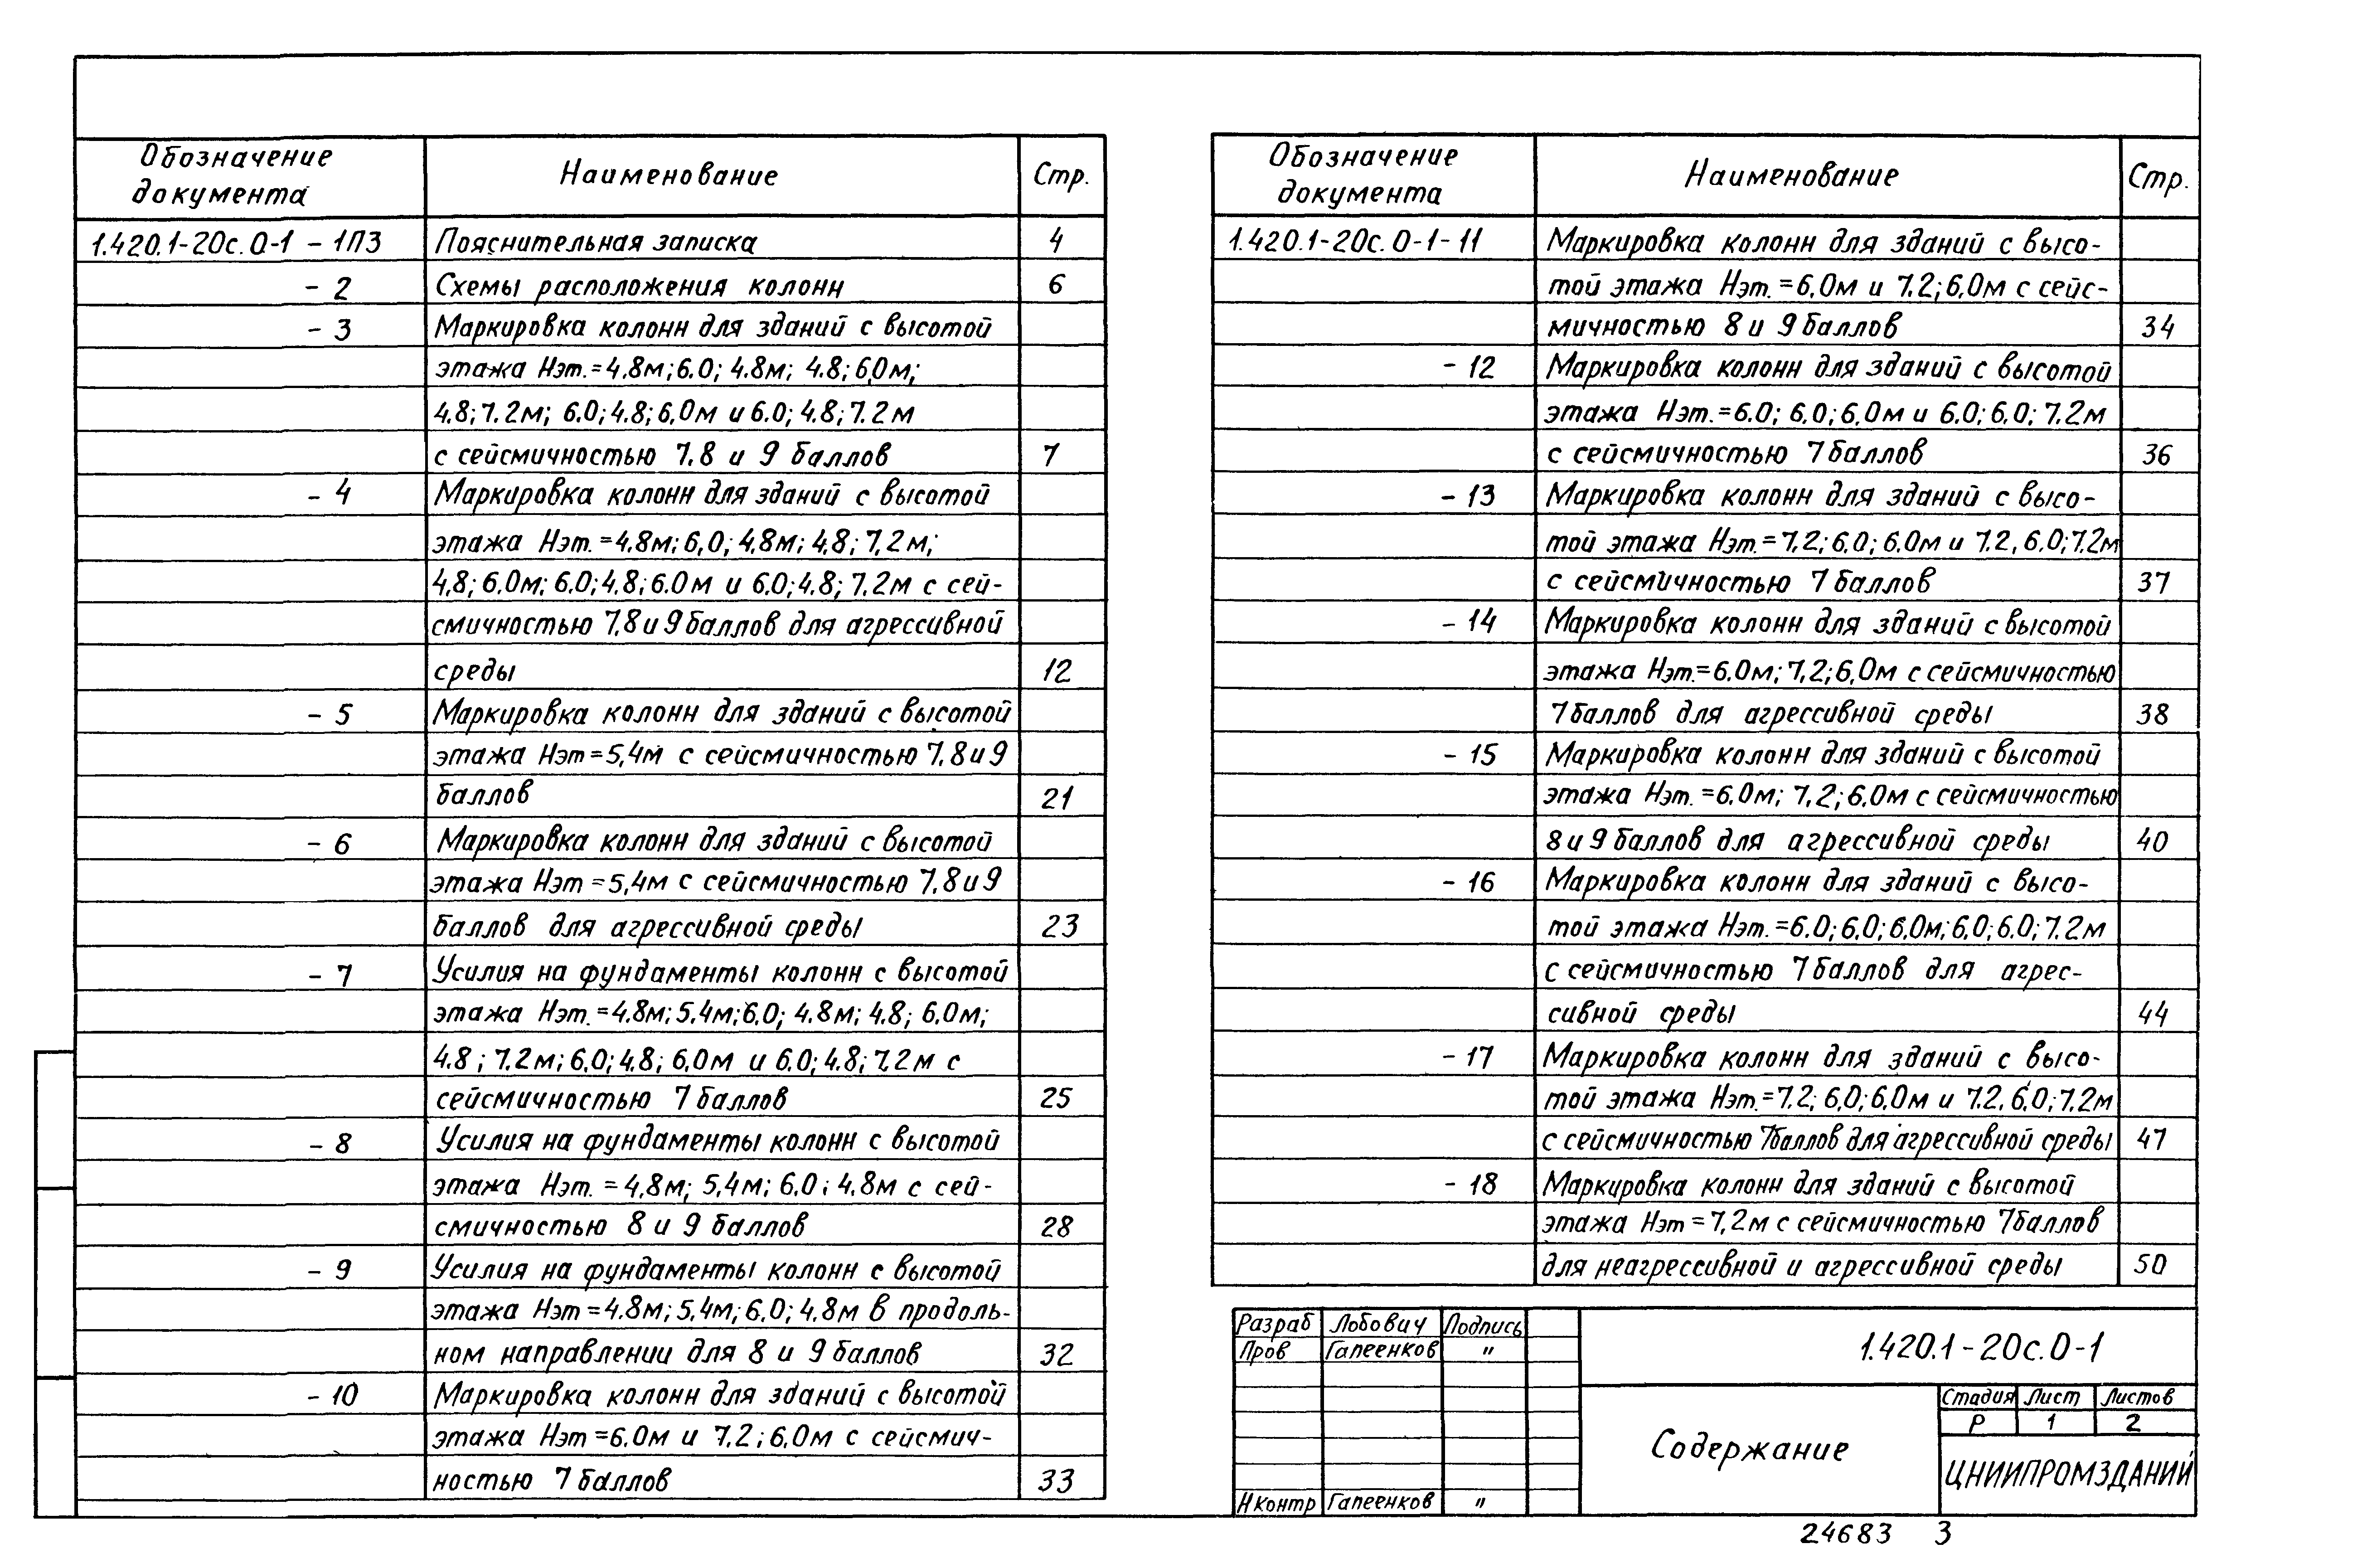 Обозначение документа Наименование Стр.
1.420.1-20с.0-1 - 1ПЗ Пояснительная записка 4
- 2 Схемы расположения колонн 6
- 3 Маркировка колонн для зданий с высотой
этажа Нэт.=4.8м; 6.0; 4.8м; 4.8; 6,0м;
4,8; 7.2м; 6.0; 4.8; 6,0м и 6.0; 4.8; 7.2м
с сейсмичностью 7,8 и 9 баллов 7
- 4 Маркировка колонн для зданий с высотой
этажа Нэт.=4.8м; 6,0; 4,8м; 4,8; 7,2м;
4,8; 6.0м; 6.0; 4,8; 6.0м и 6.0; 4,8; 7.2м с сей-
смичностью 7,8 и 9 баллов для агрессивной
среды 12
- 5 Маркировка колонн для зданий с высотой
этажа Нэт=5,4м с сейсмичностью 7,8 и 9
баллов 21
- 6 Маркировка колонн для зданий с высотой
этажа Нэт=5,4м с сейсмичностью 7,8 и 9
баллов для агрессивной среды 23
- 7 Усилия на фундаменты колонн с высотой
этажа Нэт.=4.8м; 5,4м; 6.0; 4.8м; 4.8; 6.0м;
4.8; 7.2м; 6.0; 4,8; 6,0м и 6.0; 4.8; 7,2м с
сейсмичностью 7 баллов 25
- 8 Усилия на фундаменты колонн с высотой
этажа Нэт.=4,8м; 5,4м; 6.0; 4.8м с сей-
смичностью 8 и 9 баллов 28
- 9 Усилия на фундаменты колонн с высотой
этажа Нэт=4.8м; 5,4м; 6.0; 4,8м в продоль-
ном направлении для 8 и 9 баллов 32
- 10 Маркировка колонн для зданий с высотой
этажа Нэт=6.0м и 7.2; 6,0м с сейсмич-
ностью 7 баллов 33
Обозначение документа Наименование Стр.
1.420.1-20с.0-1-11 Маркировка колонн для зданий с высо-
той этажа Нэт.=6,0м и 7.2; 6,0м с сейс-
мичностью 8 и 9 баллов 34
- 12 Маркировка колонн для зданий с высотой
этажа Нэт.=6.0; 6.0; 6,0м и 6.0; 6,0; 7.2м
с сейсмичностью 7 баллов 36
- 13 Маркировка колонн для зданий с высо-
той этажа Нэт.=7,2; 6.0; 6.0м и 7.2, 6.0; 7.2м
с сейсмичностью 7 баллов 37
- 14 Маркировка колонн для зданий с высотой
этажа Нэт.=6.0м; 7,2; 6,0м с сейсмичностью
7 баллов для агрессивной среды 38
- 15 Маркировка колонн для зданий с высотой
этажа Нэт.=6.0м; 7,2; 6.0м с сейсмичностью
8 и 9 баллов для агрессивной среды 40
- 16 Маркировка колонн для зданий с высо-
той этажа Нэт.=6.0; 6,0; 6,0м; 6,0; 6.0; 7.2м
с сейсмичностью 7 баллов для агрес-
сивной среды 44
- 17 Маркировка колонн для зданий с высо-
той этажа Нэт.=7.2; 6,0; 6,0м и 7.2, 6,0; 7,2м
с сейсмичностью 7 баллов для агрессивной среды 47
- 18 Маркировка колонн для зданий с высотой
этажа Нэт=7,2м с сейсмичностью 7 баллов
для неагрессивной и агрессивной среды 50
Разраб Лобович Подпись
Пров Гапеенков "
Н контр Гапеенков "
1.420.1-20с.0-1
Содержание
Стадия Лист Листов
Р 1 2
ЦНИИПРОМЗДАНИЙ
24683 3